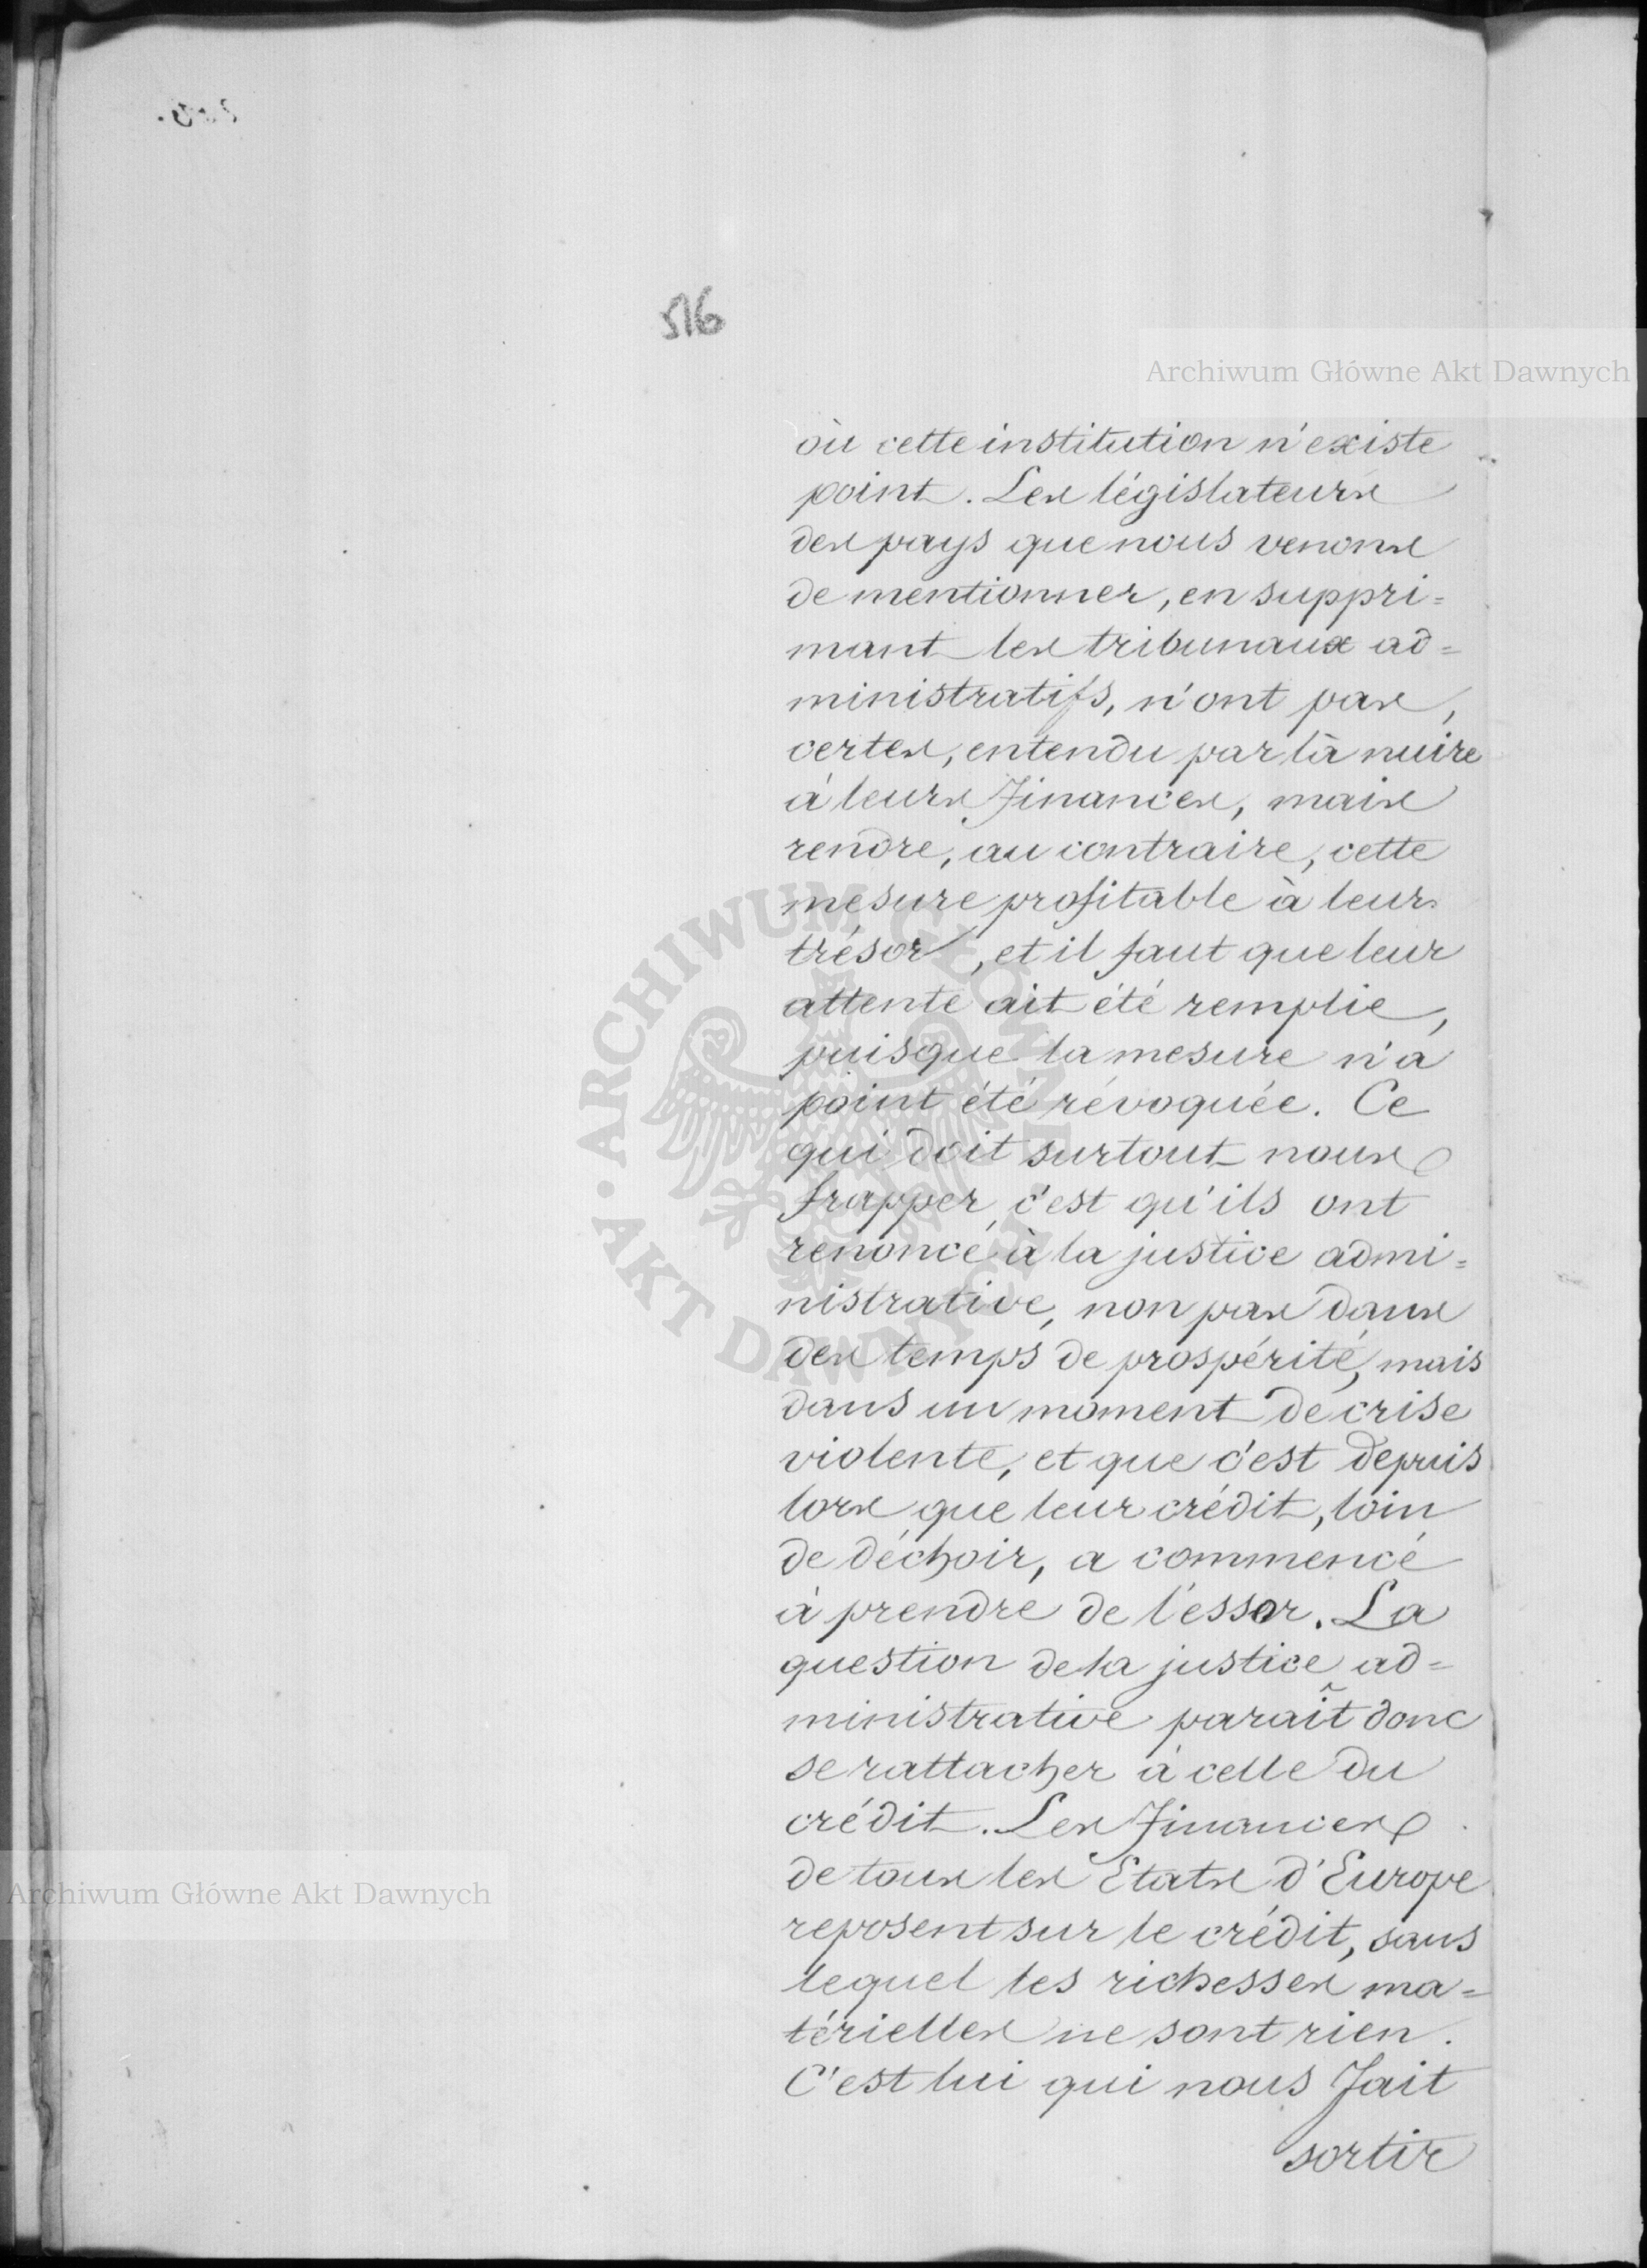 516
Archiwum Główne Akt Dawnych
où cette institution n'existe
point. Les législateurs
des pays que nous venons
de mentionner, en suppri=
mant les tribunaux ad=
ministratifs, n'ont pas,
certes, entendu par là nuire
à leurs finances, mais
rendre, au contraire, cette
mesure profitable à leur
trésor, et il faut que leur
attente ait été remplie,
puisque la mesure n'a
point été révoquée. Ce
qui doit surtout nous
frapper, c'est qu'ils ont
renoncé à la justice admi=
nistrative, non pas dans
des temps de prospérité, mais
dans un moment de crise
violente, et que c'est depuis
lors que leur crédit, loin
de déchoir, a commencé
à prendre de l'essor. La
question de la justice ad=
ministrative paraît donc
se rattacher à celle du
crédit. Les finances
de tous les Etats d'Europe
reposent sur le crédit, sans
lequel les richesses ma=
térielles ne sont rien.
C'est lui qui nous fait
sortir
ARCHIWUM GŁÓWNE AKT DAWNYCH
Archiwum Główne Akt Dawnych